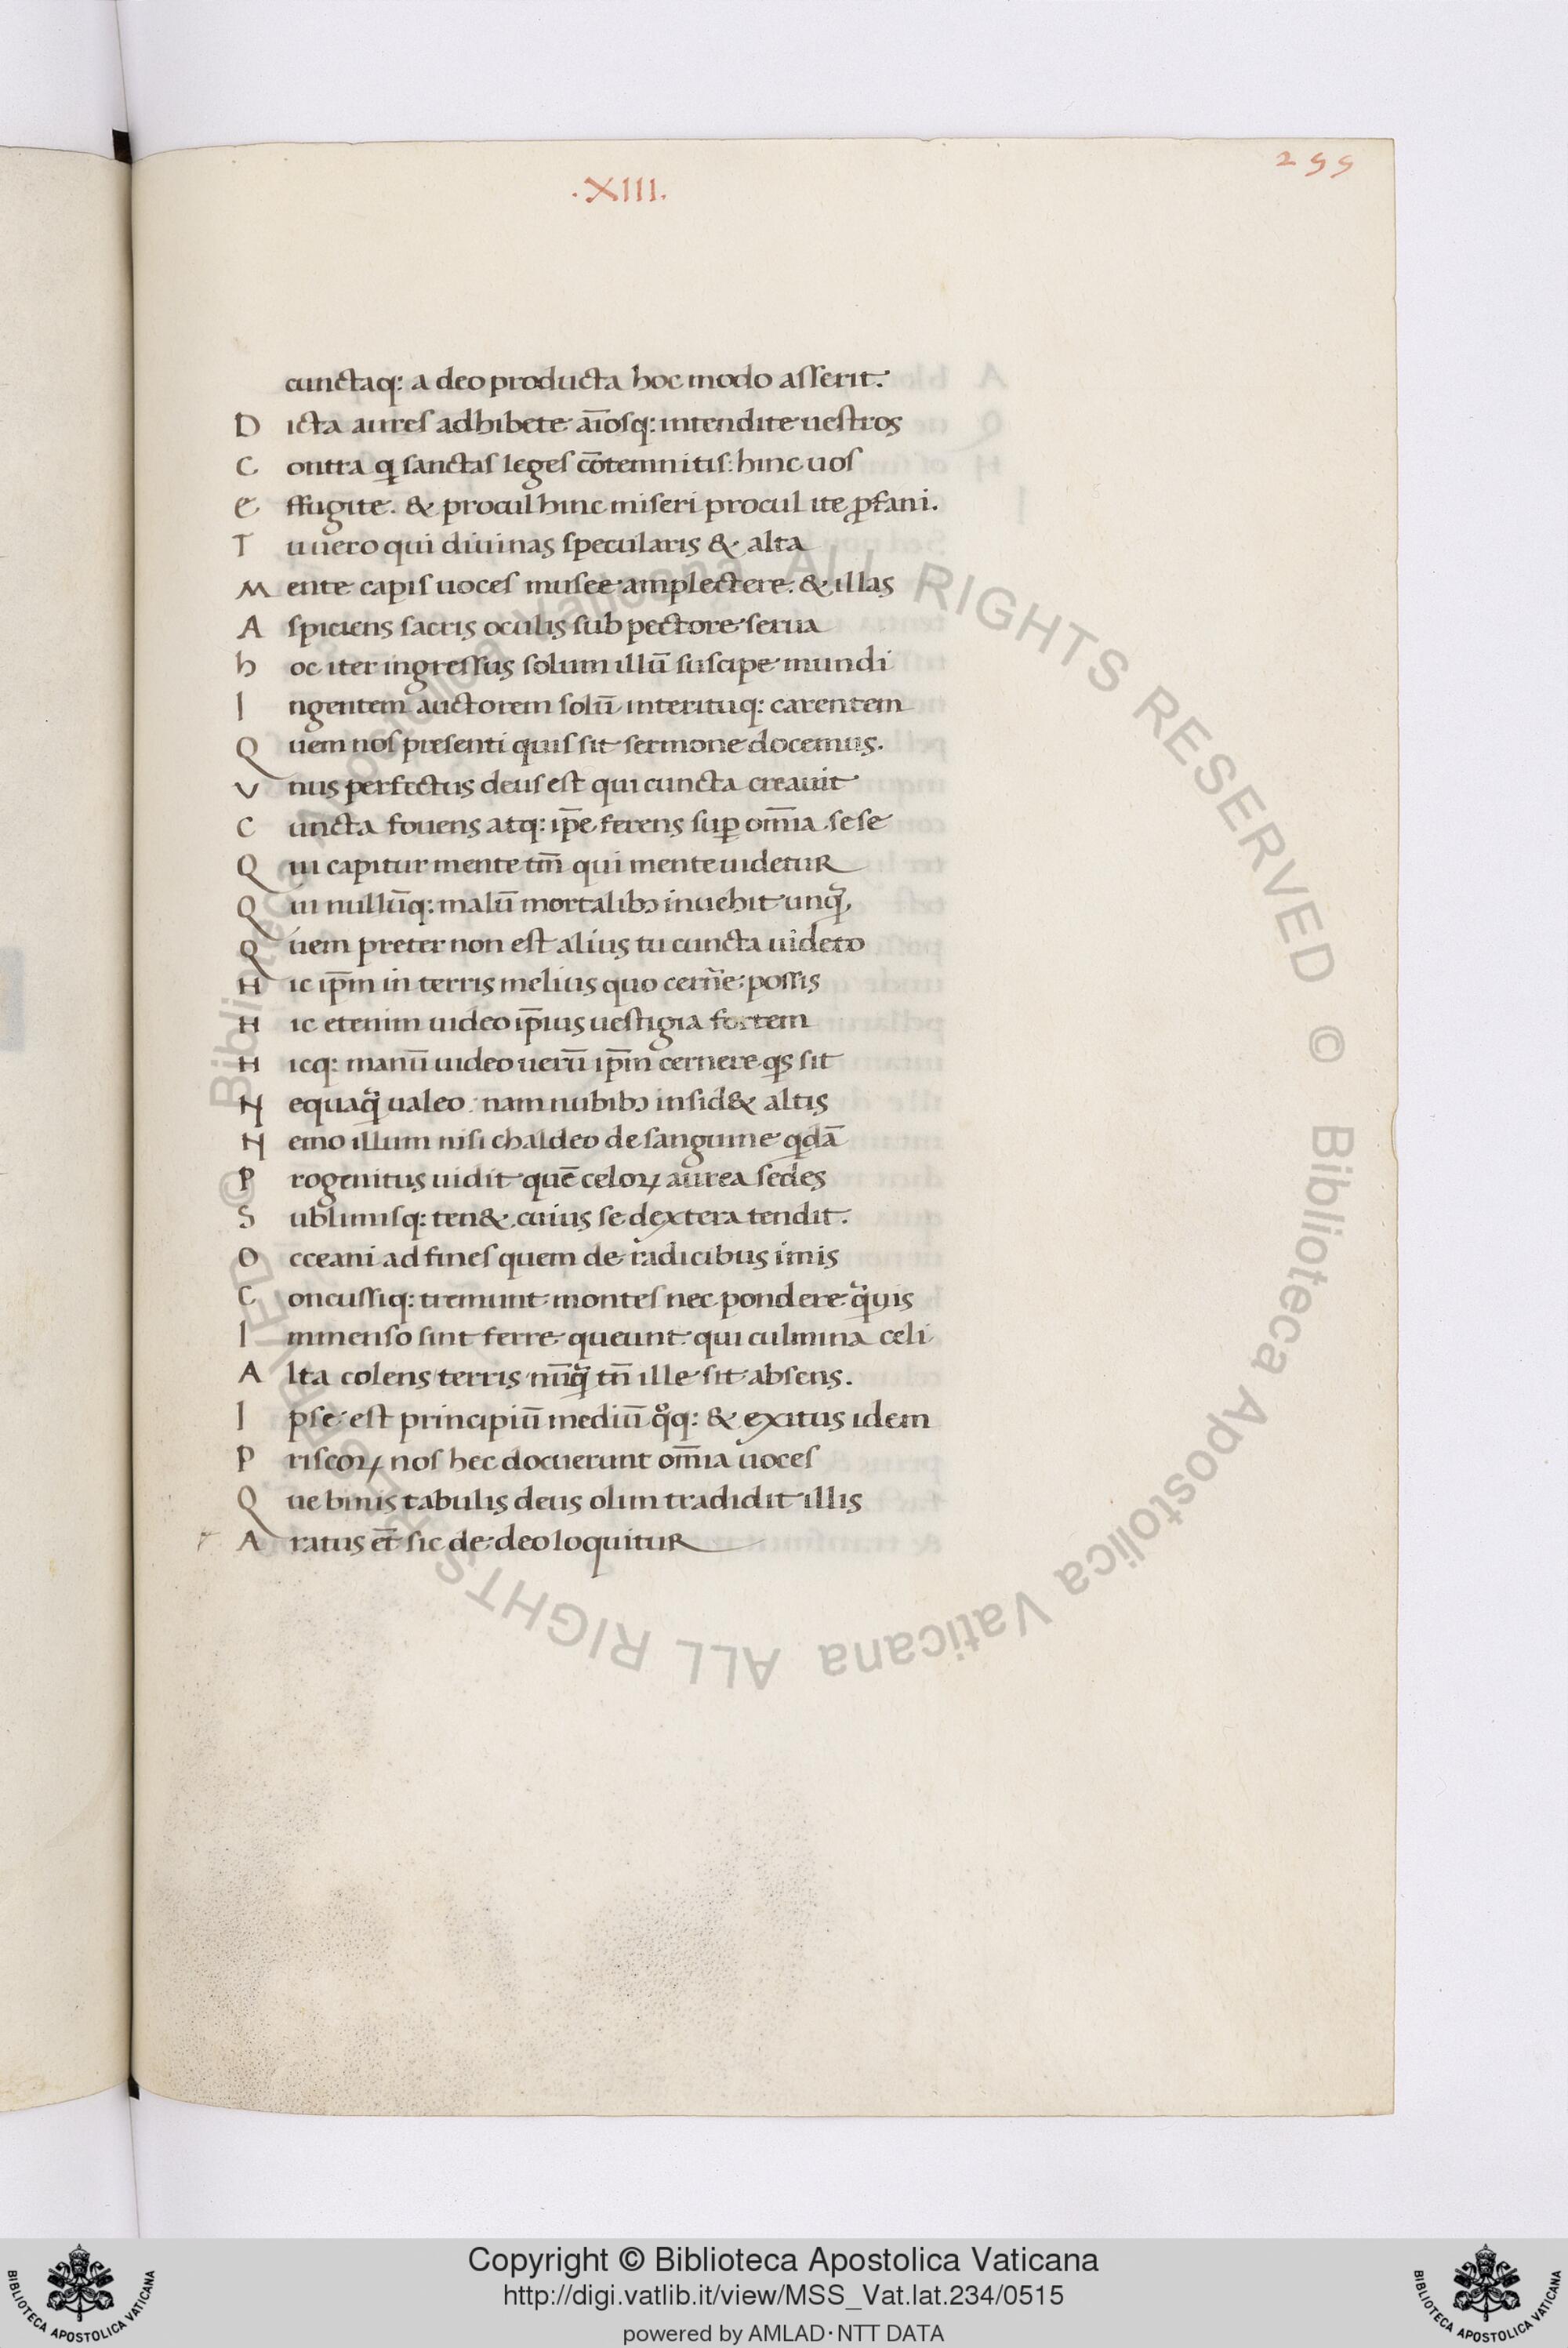 255
.XIII.
cunctaq: a deo producta hoc modo asserit.
Dicta aures adhibete aīosq: intendite uestros
Contra q sanctas leges cōtemnitis: hinc uos
effugite. & procul hinc miseri procul ite ꝓfani.
Tu uero qui diuinas specularis & alta
Mente capis uoces musee amplectere. & illas
Aspiciens sacris oculis sub pectore serua
hoc iter ingressus solum illū suscipe mundi
Ingentem auctorem solū interituq: carentem
Quem nos presenti quis sit sermone docemus.
Vnus perfectus deus est qui cuncta creauit
Cuncta fouens atq: ip̄e ferens suꝑ om̄ia sese
Qui capitur mente tm̄ qui mente uidetur
Qui nullūq: malū mortalibꝫ inuehit unq̃
Quem preter non est alius tu cuncta uideto
Hic ip̄m in terris melius quo cern̄e possis
Hic etenim uideo ip̄ius uestigia fortem
Hicq: manū uideo uerū ip̄m cernere qs sit
Nequaq̃ ualeo. nam nubibꝫ insid& altis
Nemo illum nisi chaldeo de sanguine qdā
Progenitus uidit quē celoꝝ aurea sedes
Sublimisq: ten& cuius se dextera tendit.
Occeani ad fines quem de radicibus imis
Concussiq: tremunt montes nec pondere q̃uis
Immenso sint ferre queunt qui culmina celi
Alta colens terris nūq̃ tn̄ ille sit absens.
Ipse est principiū mediū qͦq: & exitus idem
Priscoꝝ nos hec docuerunt om̄ia uoces
Que binis tabulis deus olim tradidit illis
Aratus et̄ sic de deo loquitur
© Biblioteca Apostolica Vaticana ALL RIGHTS RESERVED © Biblioteca Apostolica Vaticana ALL RIGHTS RESERVED
Copyright © Biblioteca Apostolica Vaticana
http://digi.vatlib.it/view/MSS_Vat.lat.234/0515
powered by AMLAD·NTT DATA
BIBLIOTECA APOSTOLICA VATICANA
BIBLIOTECA APOSTOLICA VATICANA